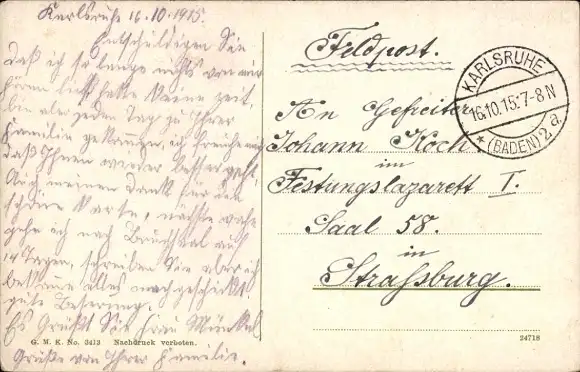 Karlsruhe 16.10.1915.
Entschuldigen Sie
daß ich so lange nichts von mir
hören ließ, hatte keine zeit,
bin alle jeden Tag zu Ihrer
Familie gekommen, ich freue mich
daß Ihnen wieder besser geht,
Aug meinen Dank für den
schöne Karte, nächste woche
gehe ich nach Bruchsal auf
14 Tagen, schreiben Sie aber ich
bekomme alles nachgeschickt.
gute Besserung.
Es Grüßt Sie Frau Münkel
Grüße von Ihrer Familie.
G. M. K. No. 3413 Nachdruck verboten.
Feldpost.
KARLSRUHE
16.10.15. 7-8 N
* (BADEN) 2 a.
An Gefreiter
Johann Koch
im
Festungslazarett I.
Saal 58.
in
Straßburg.
24718